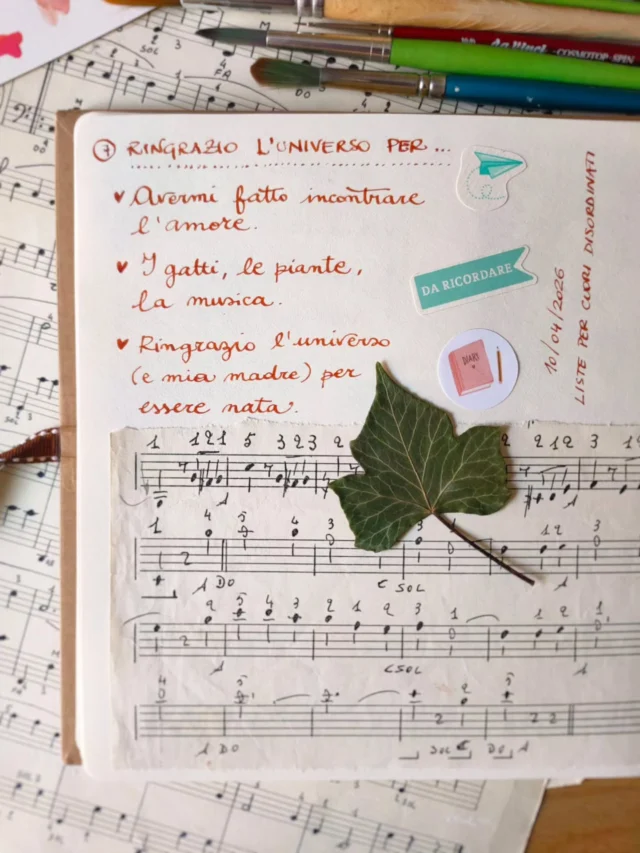 ⑦ RINGRAZIO L'UNIVERSO PER ...
♥ Avermi fatto incontrare
l'amore.
♥ I gatti, le piante,
la musica.
♥ Ringrazio l'universo
(e mia madre) per
essere nata.
DA RICORDARE
DIARY
10/04/2026
LISTE PER CUORI DISORDINATI
da Vinci COSMOTOP-SPIN
SOL
FA
DO
1 121 5 3 2 3 2
2 1 2 3
A
1 4 5 4 3
3 1 2 3
A DO
C SOL
A
2 5 4 3 2 1 2 3 1
1 2 1
A
C SOL
4 5
2 5
A DO
SOL C DO A